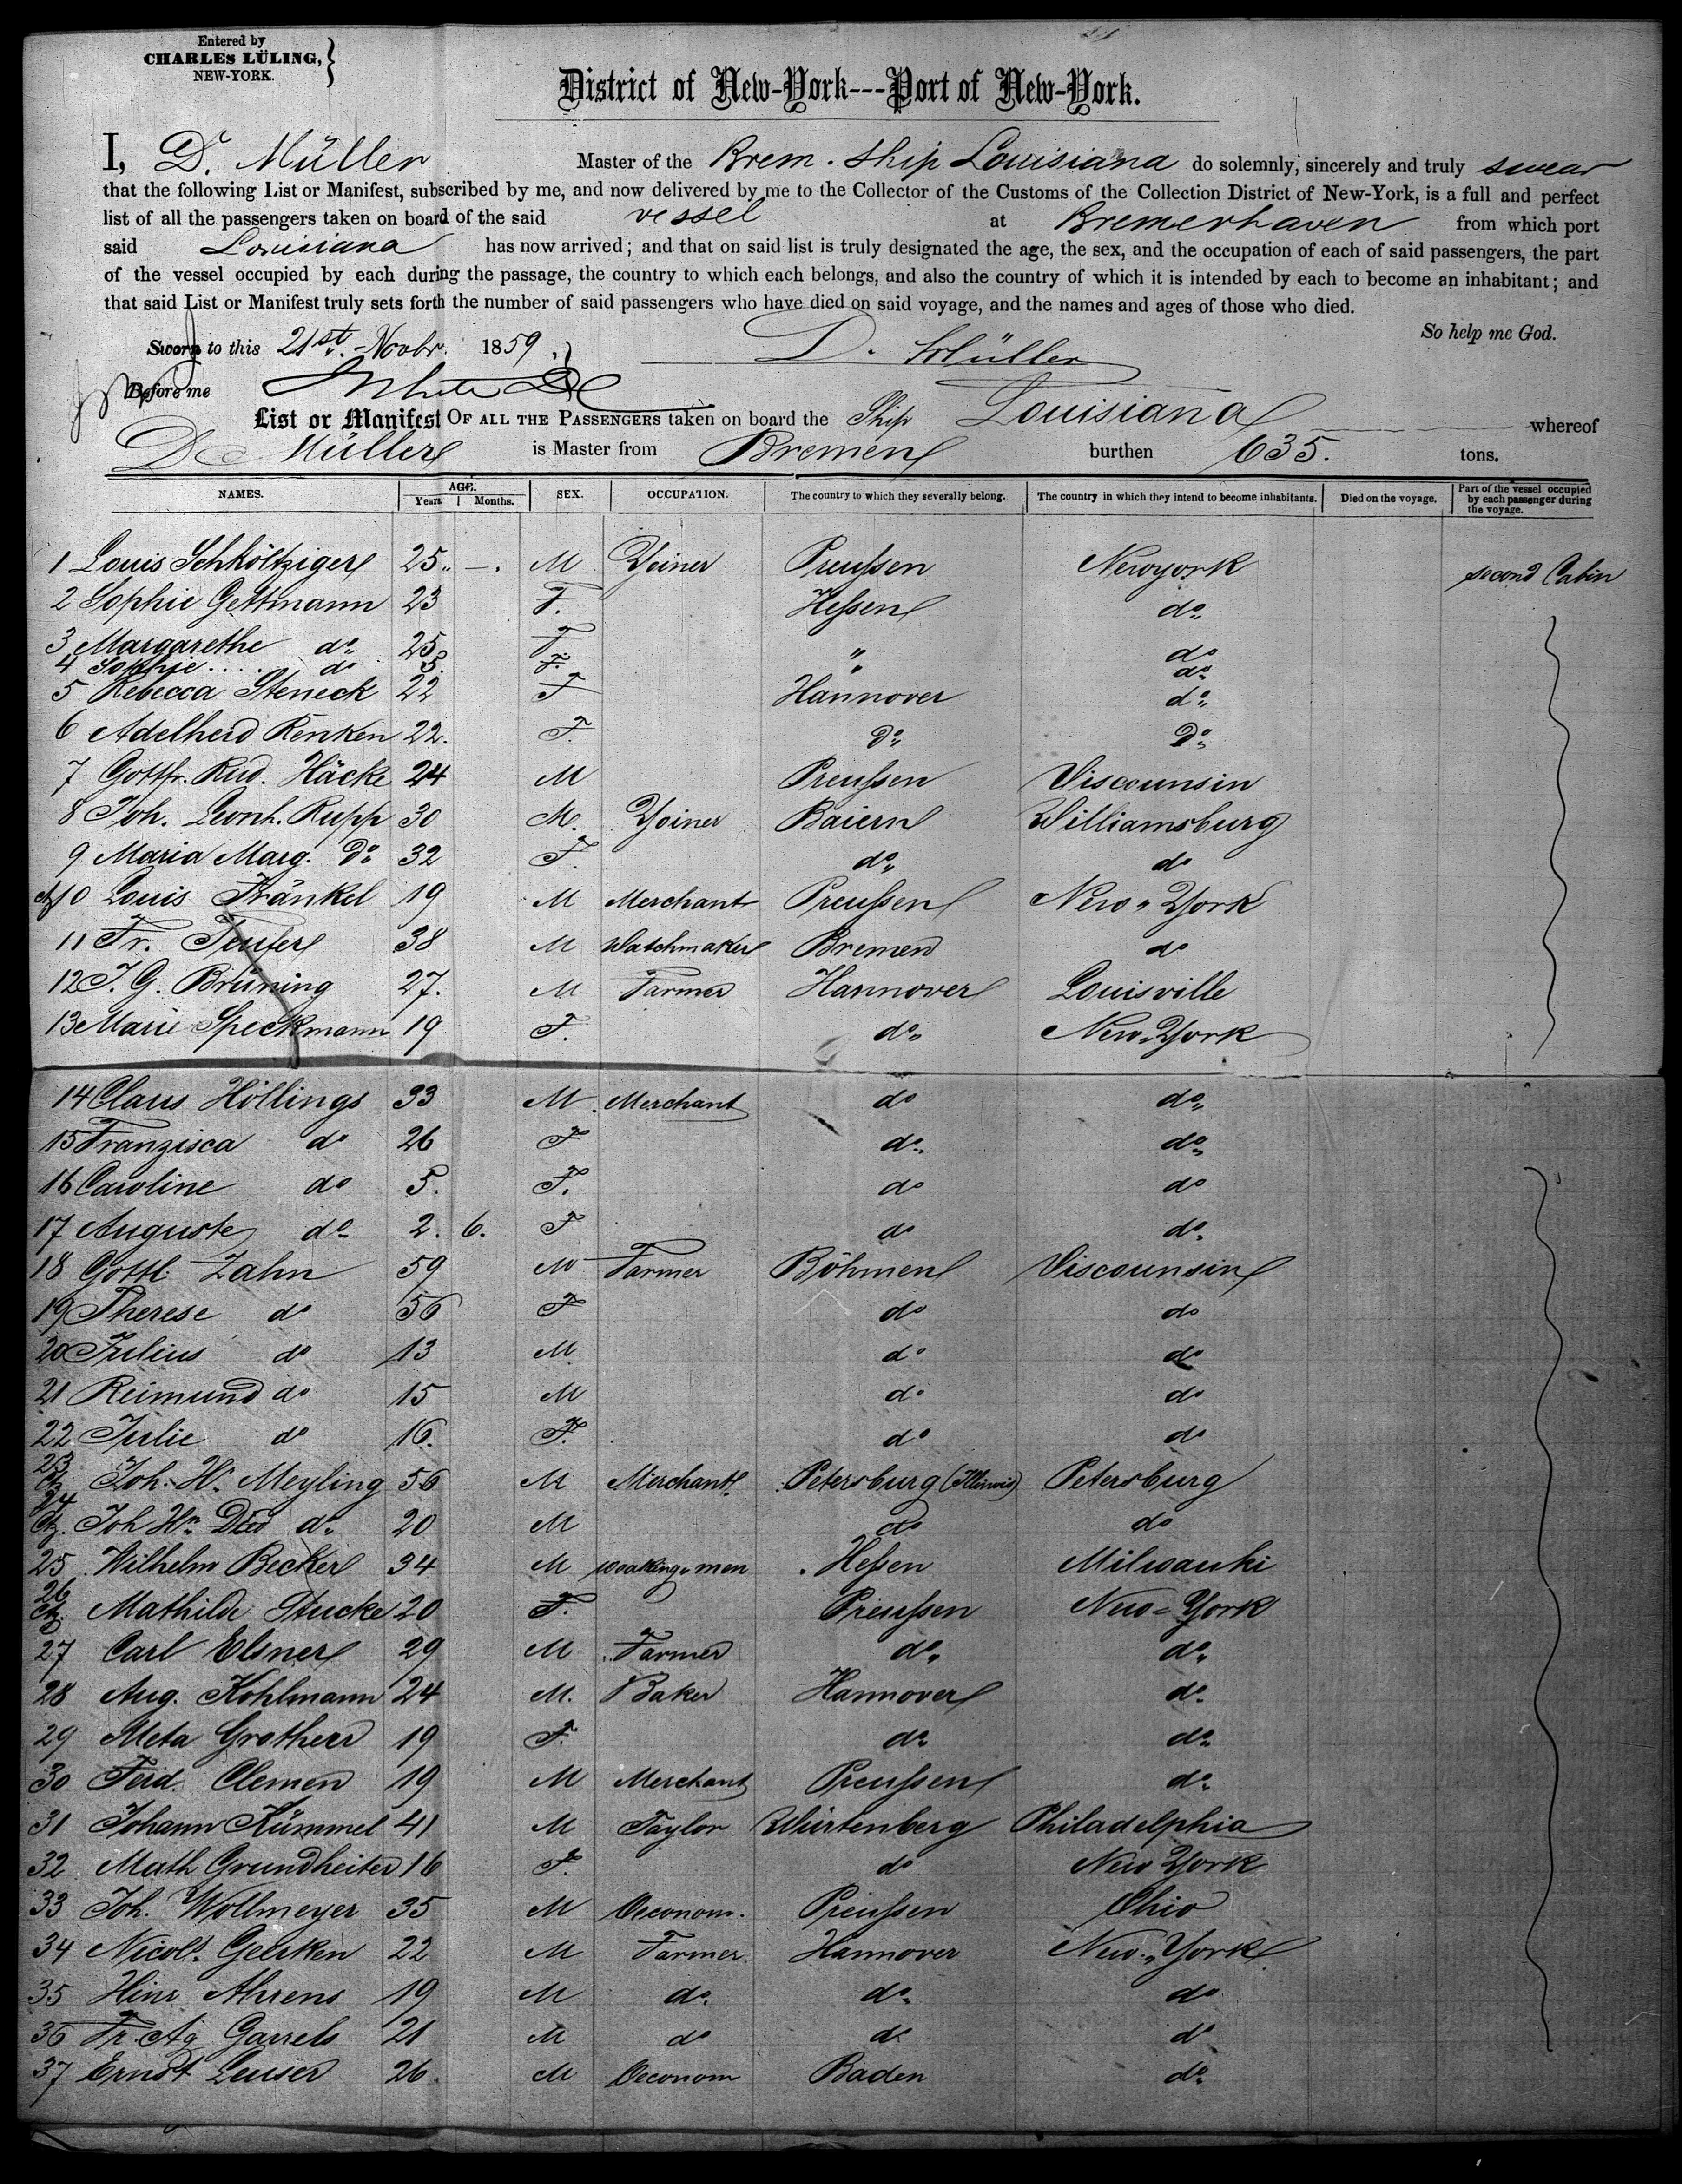 Entered by
CHARLES LÜLING,
NEW-YORK.
District of New-York---Port of New-York.
I, D. Müller Master of the Brem. Ship Louisiana do solemnly, sincerely and truly swear
that the following List or Manifest, subscribed by me, and now delivered by me to the Collector of the Customs of the Collection District of New-York, is a full and perfect
list of all the passengers taken on board of the said vessel at Bremerhaven from which port
said Louisiana has now arrived; and that on said list is truly designated the age, the sex, and the occupation of each of said passengers, the part
of the vessel occupied by each during the passage, the country to which each belongs, and also the country of which it is intended by each to become an inhabitant; and
that said List or Manifest truly sets forth the number of said passengers who have died on said voyage, and the names and ages of those who died.
So help me God.
Sworn to this 21st. Novbr. 1859. D. Müller
Before me
List or Manifest OF ALL THE PASSENGERS taken on board the Ship Louisiana whereof
D. Müller is Master from Bremen burthen 635. tons.
NAMES. AGE. Years Months. SEX. OCCUPATION. The country to which they severally belong. The country in which they intend to become inhabitants. Died on the voyage. Part of the vessel occupied by each passenger during the voyage.
1 Louis Schköltziger 25 — M Yoiner Preußen Newyork second Cabin
2 Sophie Gettmann 23 F. Heßen do
3 Margarethe do 25 F " do
4 Sophie do 5. F. " do
5 Rebecca Steneck 22 F Hannover do
6 Adelheid Renken 22. F. Do Do
7 Gottfr. Rud. Häcke 24 M Preußen Viscounsin
8 Joh. Leonh. Rupp 30 M. Yoiner Baiern Williamsburg
9 Maria Marg. Do 32 F. do do
10 Louis Fränkel 19 M Merchant Preußen New-York
11 Fr. Teufer 38 M Watchmaker Bremen do
12 J. G. Brüning 27. M Farmer Hannover Louisville
13 Marie Speckmann 19 F. do New-York
14 Claus Höllings 33 M Merchant do do
15 Franzisca do 26 F do do
16 Caroline do 5. F. do do
17 Auguste do 2. 6. F do do
18 Gottl. Zahn 59 M Farmer Böhmen Viscounsin
19 Therese do 56 F do do
20 Julius do 13 M do do
21 Reimund do 15 M do do
22 Julie do 16. F. do do
23 Joh. H. Meyling 56 M Merchant Petersburg (Illinois) Petersburg
24 Joh Hn. Died do 20 M do do
25 Wilhelm Becker 34 M woaking-man Heßen Milwauki
26 Mathilde Stucke 20 F. Preußen New-York
27 Carl Elsner 29 M Farmer do do
28 Aug. Kohlmann 24 M. Baker Hannover do
29 Meta Grotheer 19 F. do do
30 Ferd. Clemen 19 M Merchant Preußen do
31 Johann Kümmel 41 M Taylor Würtenberg Philadelphia
32 Math Grundheiter 16 F. do New York
33 Joh. Wollmeyer 35 M Oeconom. Preußen Ohio
34 Nicols. Geerken 22 M Farmer Hannover New-York
35 Hinr Ahrens 19 M do do do
36 Fr. Ag Garrels 21 M do do do
37 Ernst Leuser 26. M Oeconom Baden do